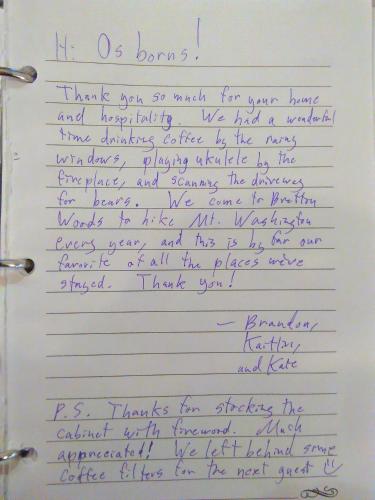 Hi Osborns!
Thank you so much for your home
and hospitality. We had a wonderful
time drinking coffee by the rainy
windows, playing ukulele by the
fireplace, and scanning the driveway
for bears. We come to Bretton
Woods to hike Mt. Washington
every year, and this is by far our
favorite of all the places we've
stayed. Thank you!
— Brandon,
Kaitlin,
and Kate
P.S. Thanks for stocking the
cabinet with firewood. Much
appreciated! We left behind some
coffee filters for the next guest